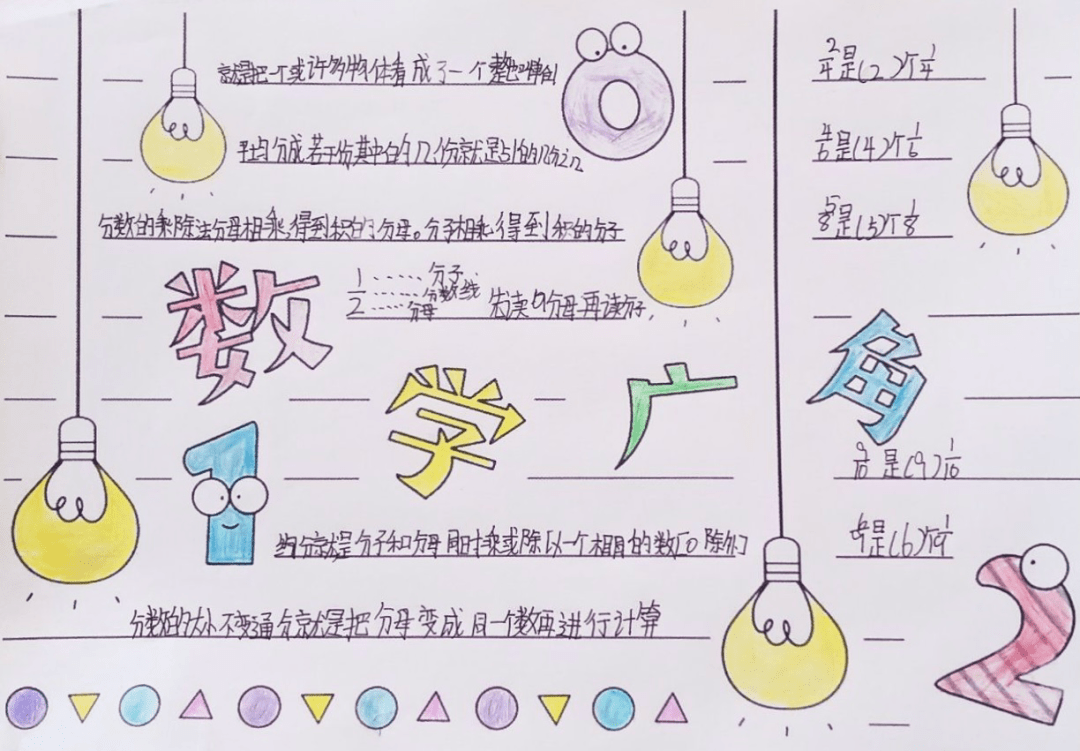 就是把一个或许多物体看成了一个整
平均分成若干份其中的几份就是它的几分之几
分数的乘除法分母相乘得到积的分母。分子相乘得到积的分子
1/2 分子 分数线 分母 先读分母再读分子,
数学广角
约分就是分子和分母同时乘或除以一个相同的数(0除外)
分数的大小不变通分就是把分母变成同一个数再进行计算
2/4是(2)个1/4
4/6是(4)个1/6
5/8是(5)个1/8
9/10是(9)个1/10
是(6)个
0
1
2